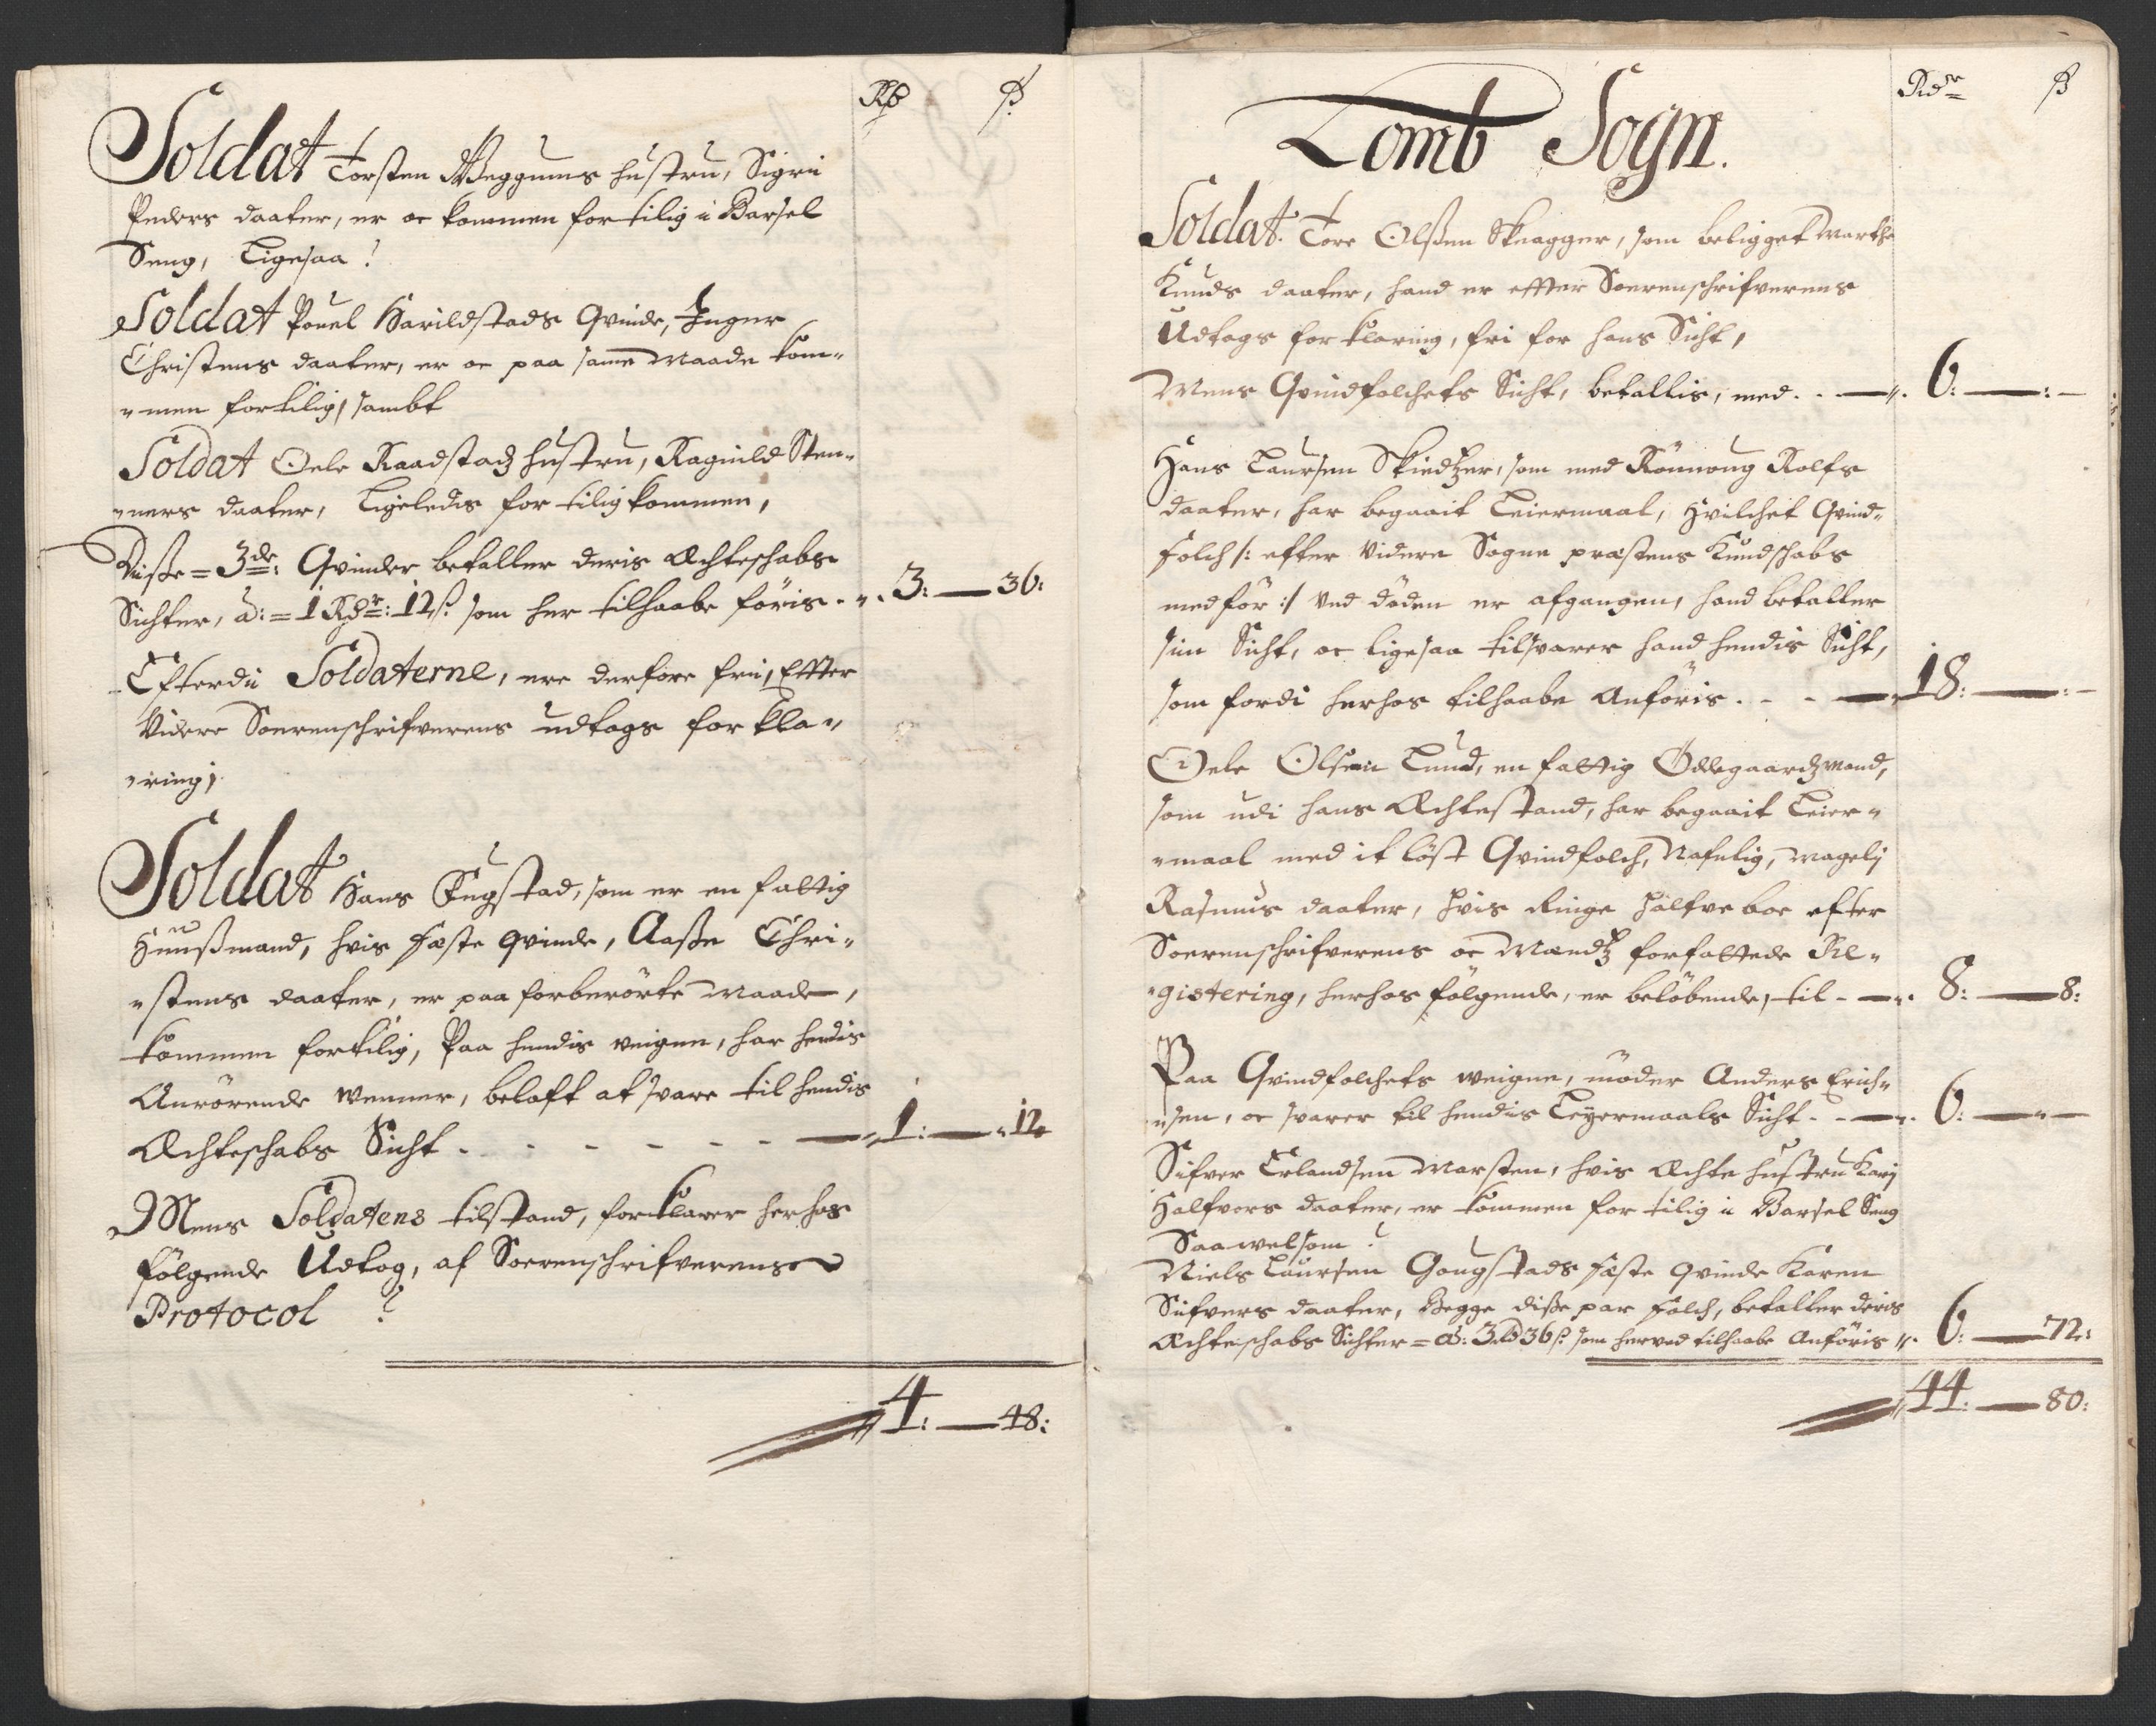 Rd ß
Soldat Torsten Weggums hustru, Sigrii
Peders daater, er oc kommen for tilig i Barsel
Seng, Ligesaa?
Soldat Pouel Harildstads Qvinde, Inger
Christens daater, er oc paa same Maade kom-
men fortilig, sambt
Soldat Oele Raadstadz hustru, Ragnild Sten-
ners daater, Ligeledis for tilig kommen,
Disse = 3de: Qvinder betaller deris Ækteschabs
Sichter, à: = 1 Rdr: 12 ß. som her tilhaabe föris - 3: — 36:
Efterdii Soldaterne, ere derfore frii, Effter
Videre Soerenschrifverens udtogs for kla-
ring,
Soldat Hans Kugstad, som er en fattig
Huußmand, hvis Fæste qvinde, Aasse Chri-
stens daater, er paa forberörte Maade,
kommen fortilig, Paa hendis veigne, har hendis
Anrörende Venner, belaft at svare til hendis
Ækteschabs Sicht - - - - - 1: — 12
Mens Soldatens tilstand, forklarer herhos
fölgende Udtog, af Soerenschrifverens
Protocol ?
4: — 48:
Rdr ß
Lomb Sogn.
Soldat. Tore Olßen Skeagger, som beligget Marthe
Knuds daater, hand er effter Soerenschrifverens
Udtogs for klaring, fri for hans Sicht,
Mens Qvindfolchets Sicht, betallis, med . . — 6: — : —
Hans Laursen Skiedtzer, som med Rönnoug Rolfs
daater, har begaait Leiermaal, Hvilchet Qvind-
Folch /: efter Videre Sogne præstens Kundschabs
medför :/ Ved döden er afgangen, hand betaller
sin Sicht, oc ligesaa tilsvarer hand hendis Sicht,
som fordi herhos tilhaabe Anföris. - - — 18: — : —
Oele Olsen Lund, en fattig Ödegaardz mand,
som udi hans Ækte stand, har begaait Leier-
maal med it löst Qvindfolch, Nafnlig, Magelj
Rasmus daater, Hvis Ringe Halfve boe efter
Soerenschrifverens oc Mændz forfattede Re-
gistering, herhos fölgende, er belöbende, til - — 8: — 8:
Paa Qvindfolchets weigne, möder Anders Erich-
sen, oc svarer til hendis Leyermaals Sicht - - — 6: — —
Sifver Erlandsen Marsten, hvis Ækte hustru Kari
Halfvors daater, er kommen for tilig i Barsel Seng
Saa wel som ?
Niels Laursen Gougstads Fæste qvinde Karen
Sifvers daater, Begge disse par Folch, betaller deris
Ækteschabs Sichter = à: 3 rd 36 ß. som herved tilhaabe Anföris 6: — 72:
44: — 80: